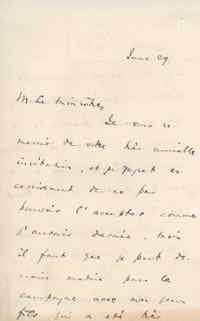 June 29.
M. Le Ministre,
Je vous re-
mercie de votre très aimable
invitation, et je regrette ex-
cessivement de ne pas
pouvoir l'accepter comme
j'aurais désiré. Mais
il faut que je parte de-
main matin pour la
campagne avec mon jeune
fils qui a été très